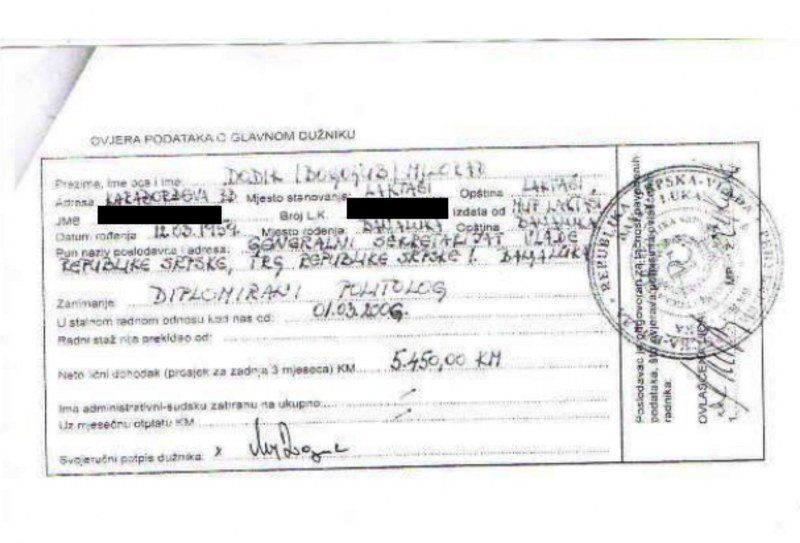 OVJERA PODATAKA O GLAVNOM DUŽNIKU
Prezime, ime oca i ime: DODIK (BOGOLJUB) MILORAD
Adresa KARAĐORĐEVA Mjesto stanovanja: LAKTAŠI Opština LAKTAŠI
JMB Broj L.K. izdata od MUP LAKTAŠI
Datum rođenja 12.03.1959. Mjesto rođenja BANJALUKA Opština BANJALUKA
Pun naziv poslodavca i adresa: GENERALNI SEKRETARIJAT VLADE
REPUBLIKE SRPSKE, TRG REPUBLIKE SRPSKE 1. BANJALUKA
Zanimanje DIPLOMIRANI POLITOLOG
U stalnom radnom odnosu kod nas od: 01.03.2006.
Radni staž nije prekidao od:
Neto lični dohodak (prosjek za zadnja 3 mjeseca) KM 5.450,00 KM
Ima administrativni-sudsku zabranu na ukupno
Uz mjesečnu otplatu KM
Svojeručni potpis dužnika: x
Poslodavac je odgovoran za tačnost navedenih
podataka, što ovjerava potpisom
radnika.
OVLAŠĆENA LICA
1.
MP 2.
REPUBLIKA SRPSKA-VLADA